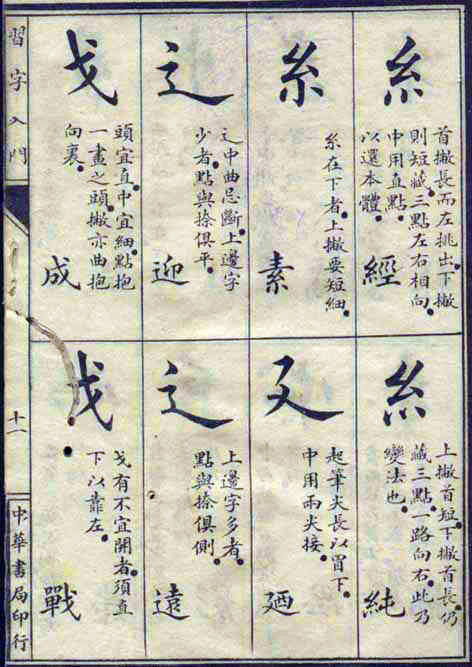 糸
首撇長而左挑出。下撇
則短藏。三點左右相向。
中用直點。
以還本體。
經
糸
糸在下者。上撇要短細。
素
辶
辶中曲忌斷。上邊字
少者。點與捺俱平。
迎
戈
頭宜直。中宜細。點抱
一畫之頭。撇亦曲抱
向裏。
成
糸
上撇首短。下撇首長。仍
藏三點。一路向右。此乃
變法也。
純
廴
起筆尖長以冒下。
中用兩尖接。
廼
辶
上邊字多者。
點與捺俱側。
遠
戈
戈有不宜開者。須直
下以靠左。
戰
習字入門
十一
中華書局印行